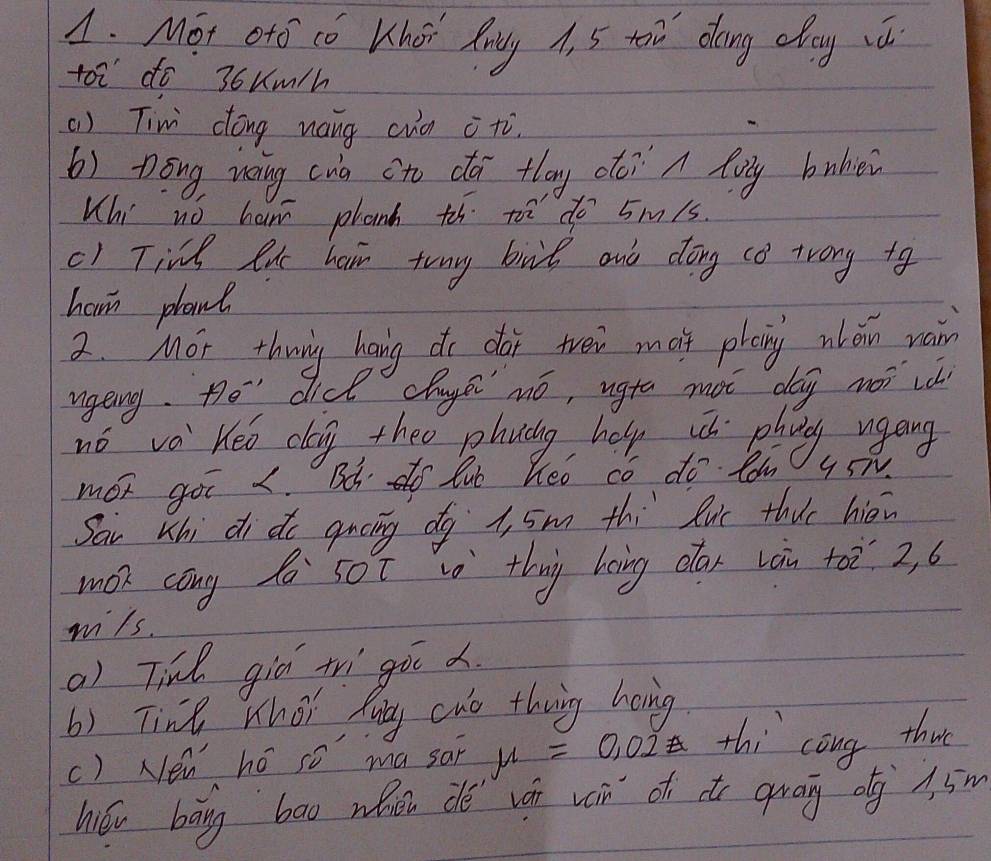 1. Một ôtô có khối lượng 1,5 tấn đang chạy với
tốc độ 36Km/h
a) Tìm động năng của ô tô.
b) Động năng của ôto đã thay đổi 1 lượng bnhiên
Khi nó hãm phanh tới tốc độ 5m/s.
c) Tính lực hãm trung bình của động cơ trong tg
hãm phanh
2. Một thùng hàng đc đặt trên mặt phẳng nhẵn nằm
ngang. Để dịch chuyển nó, ngta móc dây nối với
nó và kéo dây theo phương hợp với phương ngang
một góc α. Bởi lực kéo có độ lớn 45N.
Sau khi đi đc quãng đg 1,5m thì lực thực hiện
một công là 50J và thùng hàng đạt vận tốc 2,6
m/s.
a) Tính giá trị góc α.
b) Tính khối lượng của thùng hàng.
c) Nếu hệ số ma sát μ = 0,02 thì công thực
hiện bằng bao nhiêu để vật vẫn đi đc quãng đg 1,5m